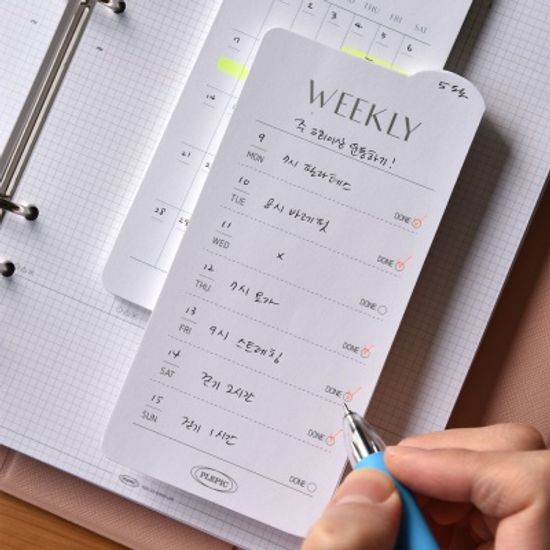 THU FRI SAT
3 4 5 6
7
14
21
28 29
WEEKLY
주 3회이상 운동하기!
9
MON 7시 필라테스
DONE
10
TUE 8시 바레핏
DONE
11
WED ×
DONE
12
THU 7시 요가
DONE
13
FRI 9시 스트레칭
DONE
14
SAT 걷기 2시간
DONE
15
SUN 걷기 1시간
DONE
PLEPIC